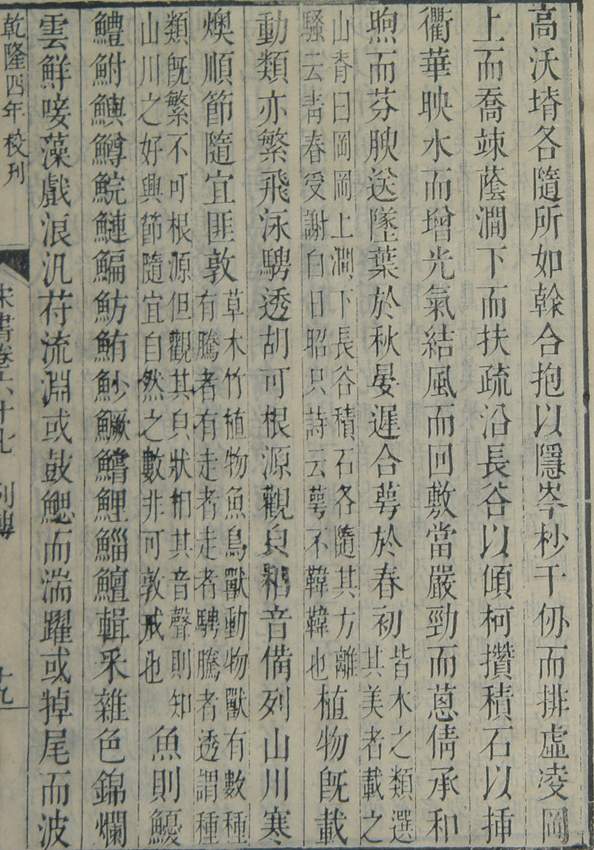 高沃塉各隨所如榦合抱以隱岑杪千仞而排虛凌岡
上而喬竦蔭澗下而扶疏沿長谷以傾柯攢積石以插
衢華映水而增光氣結風而回敷當嚴勁而蔥倩承和
煦而芬腴送墜葉於秋晏遲含萼於春初
皆木之類選
其美者載之
山脊曰岡岡上澗下長谷積石各隨其方離
騷云青春受謝白日昭只詩云萼不韡韡也
植物旣載
動類亦繁飛泳騁透胡可根源觀皃相音備列山川寒
燠順節隨宜匪敦
草木竹植物魚鳥獸動物獸有數種
有騰者有走者走者騁騰者透謂種
類旣繁不可根源但觀其皃狀相其音聲則知
山川之好興節隨宜自然之數非可敦戒也
魚則
鱧鮒鱮鱒鯇鰱鯿魴鮪魦鱖鱨鯉鯔鱣輯采雜色錦爛
雲鮮唼藻戲浪汎苻流淵或鼓鰓而湍躍或掉尾而波
乾隆四年校刊
宋書卷六十七 列傳 十九